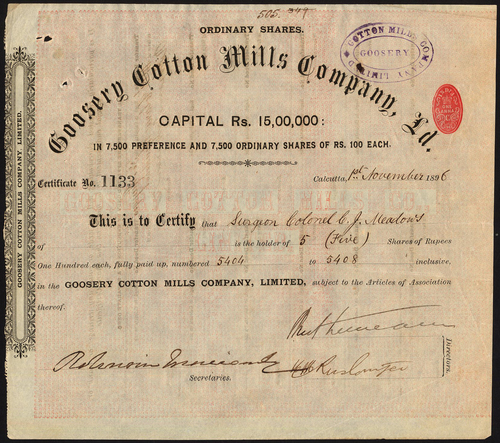 505. 349
ORDINARY SHARES.
Goosery Cotton Mills Company, Ld.
COTTON MILLS COMPANY LIMITED
GOOSERY
CAPITAL Rs. 15,00,000:
IN 7,500 PREFERENCE AND 7,500 ORDINARY SHARES OF RS. 100 EACH.
Certificate No. 1133
Calcutta, 1st November 1896
This is to Certify that Surgeon Colonel C. J. Meadows
of is the holder of 5 (Five) Shares of Rupees
One Hundred each, fully paid up, numbered 5404 to 5408 inclusive,
in the GOOSERY COTTON MILLS COMPANY, LIMITED, subject to the Articles of Association
thereof.
Directors.
Secretaries.
GOOSERY COTTON MILLS COMPANY, LIMITED.